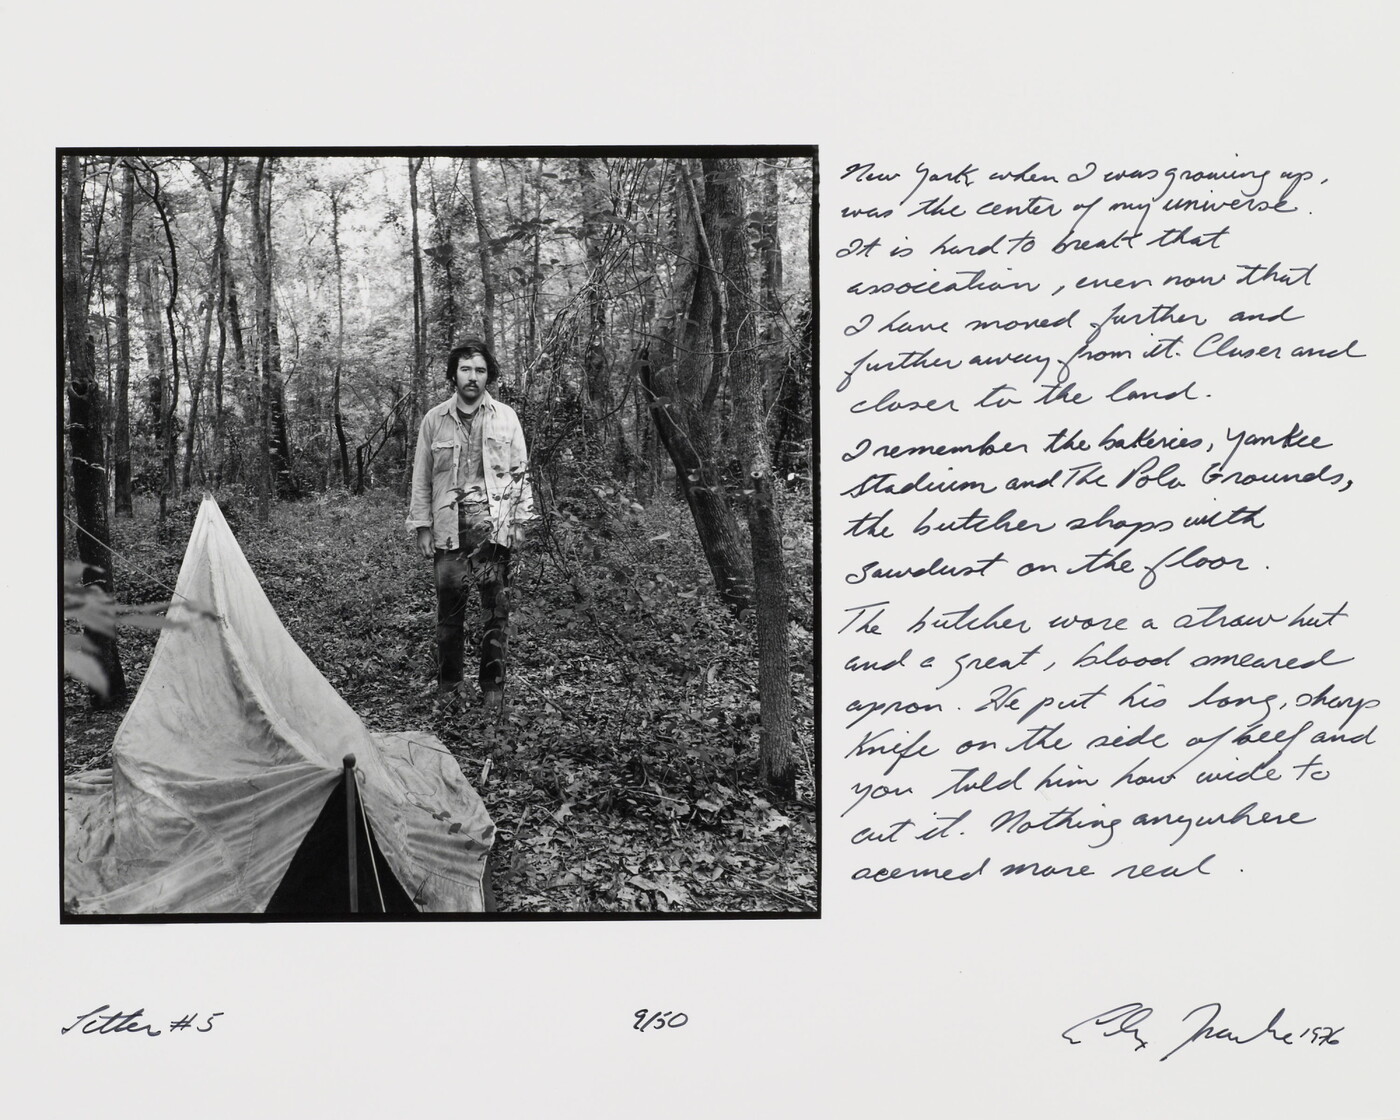 New York, when I was growing up,
was the center of my universe.
It is hard to break that
association, even now that
I have moved further and
further away from it. Closer and
closer to the land.
I remember the bakeries, Yankee
Stadium and The Polo Grounds,
the butcher shops with
sawdust on the floor.
The butcher wore a straw hat
and a great, blood smeared
apron. He put his long, sharp
knife on the side of beef and
you told him how wide to
cut it. Nothing anywhere
seemed more real.
#5
9/50
1976